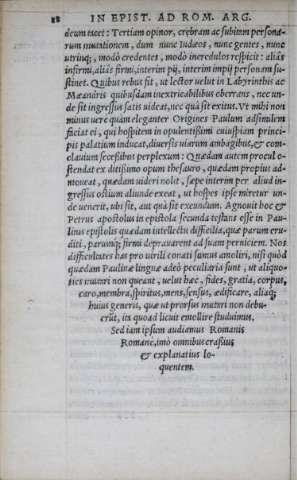 88 IN EPIST. AD ROM. ARG.
deum esset: Tertiam opinor, crebram ac subinm personarum
rum mutationem, dum nunc Iudæos, nunc gentes, nunc
utrinq;, modò credentes, modò incredulos respicit: aliàs
infirmi, aliàs firmi, interim pij, interim impij personam su-
stinet. Quibus rebus fit, ut lector uelut in Labyrinthis ac
Mæandris quibusdam inextricabilibus oberrans, nec un-
de sit ingressus satis uideat, nec quà sit exitus. Vt mihi non
minus uere quàm eleganter Origines Paulum adsimulem
faciat ei, qui hospitem in opulentißimi cuiuspiam princi-
pis palatium inducat, diuersis uiarum ambagibus, & con-
clauium secessibus perplexum: Quædam autem procul o-
stendat ex ditißimo opum thesauro, quædam propius ad-
moueat, quædam uideri nolit, sæpe interim per aliud in-
gressus ostium aliunde exeat, ut hospes ipse miretur un-
de uenerit, ubi sit, aut quà sit exeundum. Agnouit hoc &
Petrus apostolus in epistola secunda testans esse in Pau-
linis epistolis quædam intellectu difficilia, quæ parum eru-
diti, parumq; firmi deprauarent ad suam perniciem. Nos
difficultates has pro uirili conati sumus amoliri, nisi quòd
quædam Paulinæ linguæ adeò peculiaria sunt, ut aliquo-
ties mutari non queant, uelut hæc, fides, gratia, corpus,
caro, membra, spiritus, mens, sensus, ædificare, aliaq;
huius generis, quæ ut prorsus mutari non debu-
erūt, in quoad licuit emollire studuimus.
Sed iam ipsum audiamus Romanis
Romane, imò omnibus craßius
& explanatius lo-
quentem.